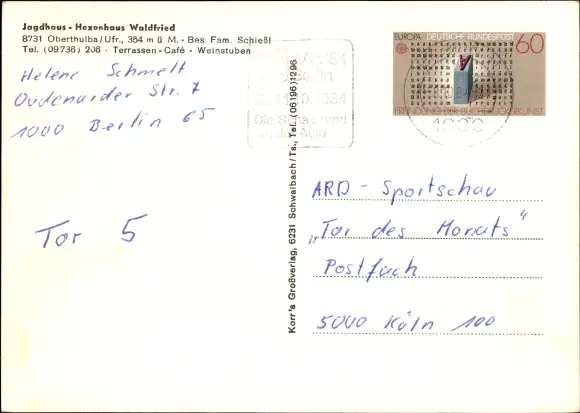 Jagdhaus - Hexenhaus Waldfried
8731 Oberthulba/Ufr., 354 m ü M. · Bes Fam. Schießl
Tel. (09736) 206 · Terrassen-Café · Weinstuben
Helene Schmelt
Oudenarder Str. 7
1000 Berlin 65
Tor 5
Korr's Großverlag, 6231 Schwalbach/Ts., Tel. (06196) 1296
'84
Berlin
1984
Die Schau rund
Auto
EUROPA DEUTSCHE BUNDESPOST 60
A
ERFINDUNG DER BUCHDRUCKERKUNST
1000
ARD - Sportschau
„Tor des Monats"
Postfach
5000 Köln 100